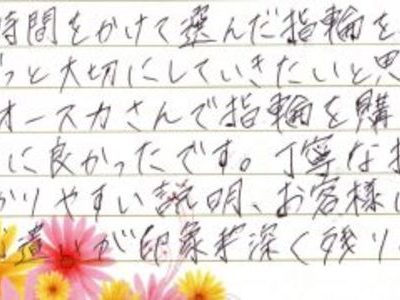 時間をかけて選んだ指輪を
っと大切にしていきたいと思
オースカさんで指輪を購
に良かったです。丁寧な
かりやすい説明、お客様に
遣いが印象深く残り